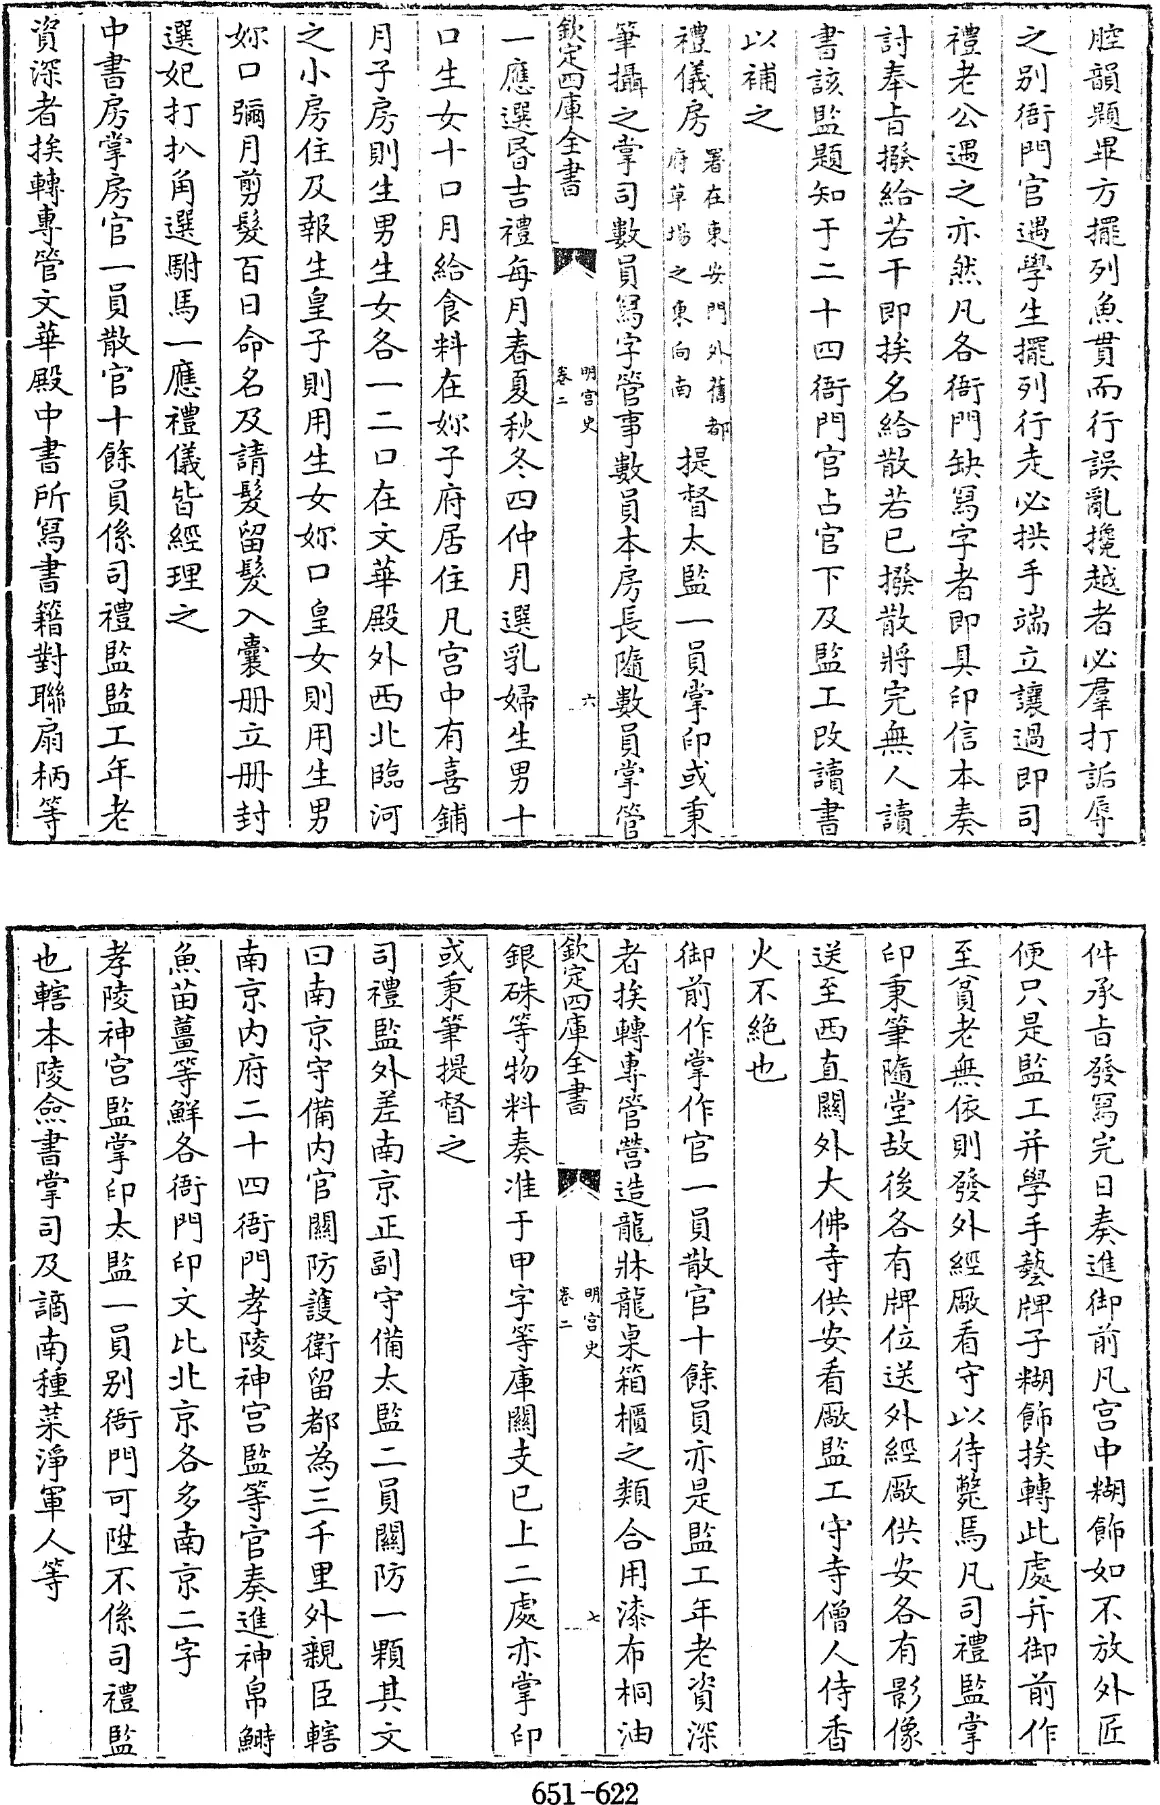 腔韻題畢方擺列魚貫而行誤亂攙越者必羣打詬辱
之别衙門官遇學生擺列行走必拱手端立讓過即司
禮老公遇之亦然凡各衙門缺寫字者即具印信本奏
討奉旨撥給若干即挨名給散若已撥散將完無人讀
書該監題知于二十四衙門官占官下及監工改讀書
以補之
禮儀房署在東安門外舊都府草場之東向南提督太監一員掌印或秉
筆攝之掌司數員寫字管事數員本房長隨數員掌管
欽定四庫全書 明宫史 卷二 六
一應選昏吉禮每月春夏秋冬四仲月選乳婦生男十
口生女十口月給食料在妳子府居住凡宫中有喜鋪
月子房則生男生女各一二口在文華殿外西北臨河
之小房住及報生皇子則用生女妳口皇女則用生男
妳口彌月剪髮百日命名及請髮留髮入囊册立册封
選妃打扒角選駙馬一應禮儀皆經理之
中書房掌房官一員散官十餘員係司禮監監工年老
資深者挨轉專管文華殿中書所寫書籍對聯扇柄等
件承旨發寫完日奏進御前凡宫中糊飾如不放外匠
便只是監工并學手藝牌子糊飾挨轉此處并御前作
至貧老無依則發外經厰看守以待斃焉凡司禮監掌
印秉筆隨堂故後各有牌位送外經厰供安各有影像
送至西直關外大佛寺供安看厰監工守寺僧人侍香
火不絶也
御前作掌作官一員散官十餘員亦是監工年老資深
者挨轉專管營造龍牀龍桌箱櫃之類合用漆布桐油
欽定四庫全書 明宫史 卷二 七
銀硃等物料奏准于甲字等庫關支已上二處亦掌印
或秉筆提督之
司禮監外差南京正副守備太監二員關防一顆其文
曰南京守備内官關防護衛留都為三千里外親臣轄
南京内府二十四衙門孝陵神宫監等官奏進神帛鰣
魚苗薑等鮮各衙門印文比北京各多南京二字
孝陵神宫監掌印太監一員别衙門可陞不係司禮監
也轄本陵僉書掌司及謫南種菜淨軍人等
651-622